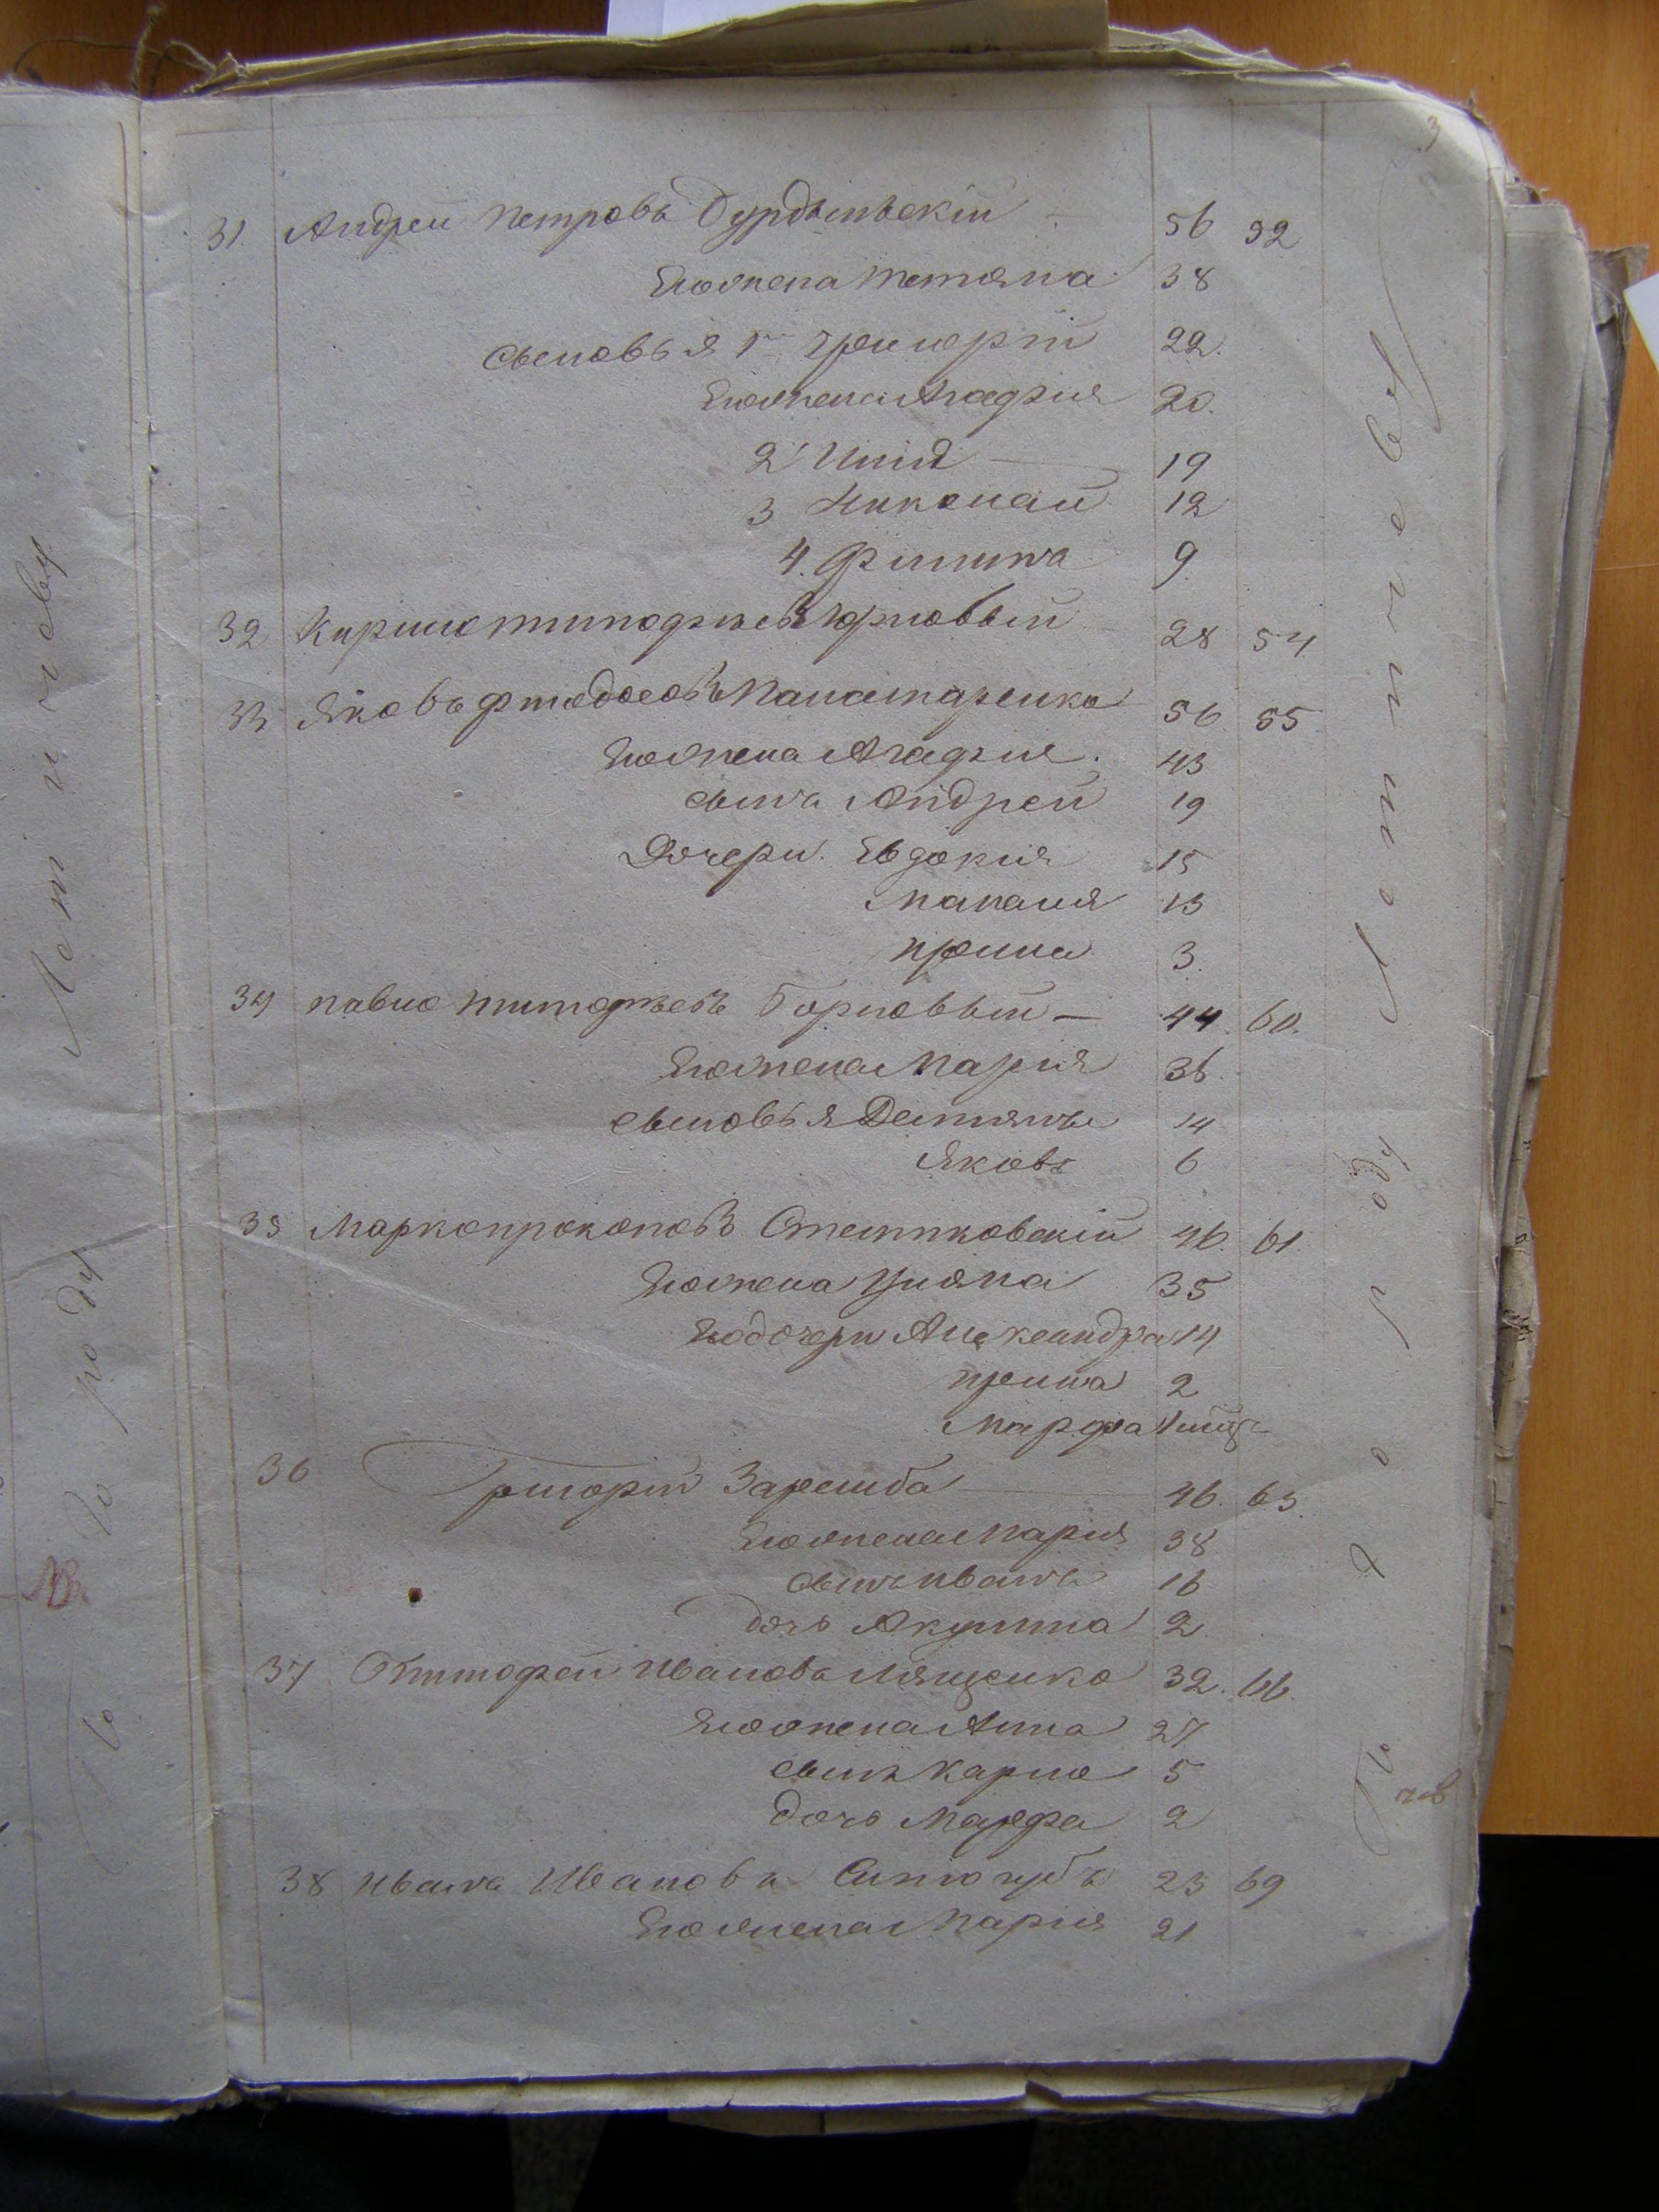 3
31. Андрей Петровъ Бурдыльскій — 56 52
Его жена Татяна 38
Сыновья 1й Григорій 22.
Его жена Агафия 20.
2й Илля — 19
3 Николай 12
4. Филипъ 9
32 Кирило Тимофіевъ Юрковый 28 54
33 Яковъ Феодосовъ Паламаренко 56 55
Его жена Агафия. 43
сынъ Андрей 19
Дочери. Евдокия 15
Маланя 13
Ирина 3.
34 Павло Тимофіевъ Горковый — 44. 60.
Его жена Мария 36
сыновья Демянъ 14
Яковъ 6
35 Марко Прокоповъ Стемпковскій 46. 61
Его жена Уляна 35
Его дочери Александра 14
Ирина 2
Марфа
36 Григорій Заремба — 46. 63.
Его жена Мария 38
сынъ Иванъ 16
дочь Акулина 2.
37 Тимофей Ивановъ Лященко 32. 66.
Его жена Анна 27
сынъ Карпо 5
дочь Марфа 2
38 Иванъ Ивановъ 23 69
Его жена Мария 21
По городу
По городу